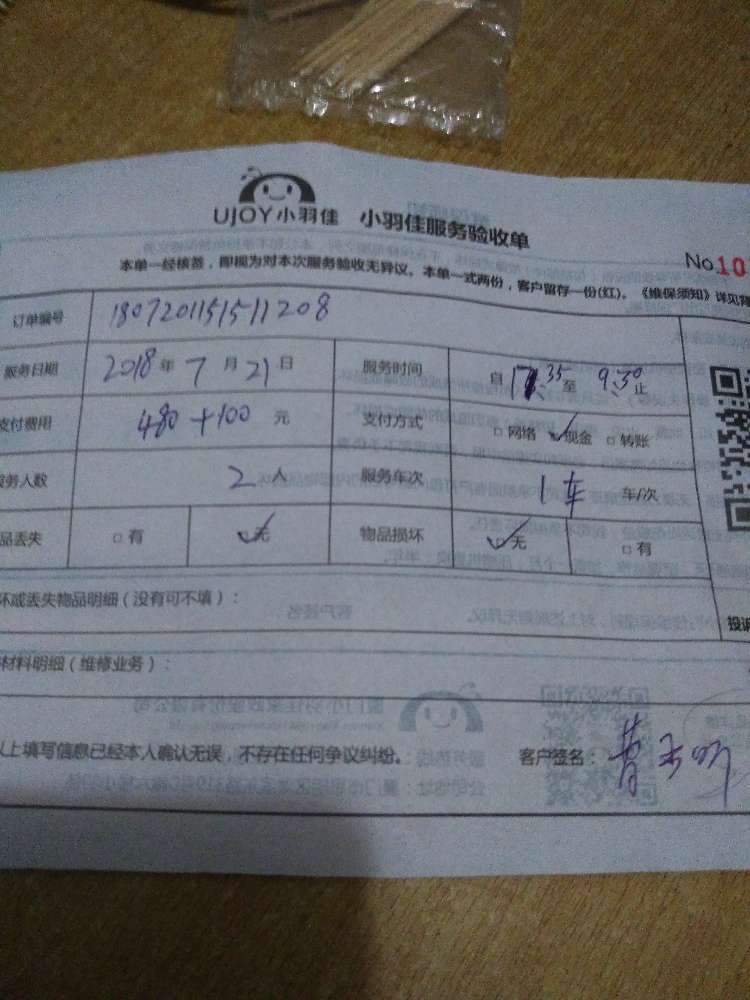 UJOY小羽佳 小羽佳服务验收单
No.10
本单一经核签，即视为对本次服务验收无异议。本单一式两份，客户留存一份(红)。《维保须知》详见背
订单编号 180720115151 1208
服务日期 2018年7月21日 服务时间 自17:35至9:30止
支付费用 480+100元 支付方式 □网络 ☑现金 □转账
服务人数 2人 服务车次 1车 车/次
品丢失 □有 ☑无 物品损坏 ☑无 □有
坏或丢失物品明细（没有可不填）：
投诉
材料明细（维修业务）：
以上填写信息已经本人确认无误，不存在任何争议纠纷。 客户签名：